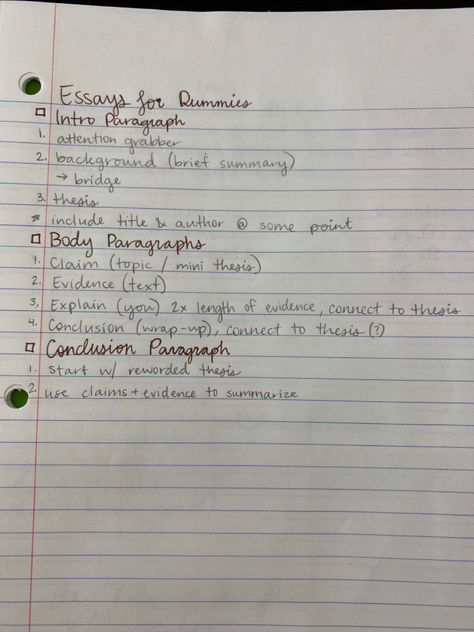 Essays for Dummies
Intro Paragraph
1. attention grabber
2. background (brief summary)
→ bridge
3. thesis
* include title & author @ some point
Body Paragraphs
1. Claim (topic / mini thesis)
2. Evidence (text)
3. Explain (you) 2x length of evidence, connect to thesis
4. Conclusion (wrap-up), connect to thesis (?)
Conclusion Paragraph
1. start w/ reworded thesis
2 use claims + evidence to summarize